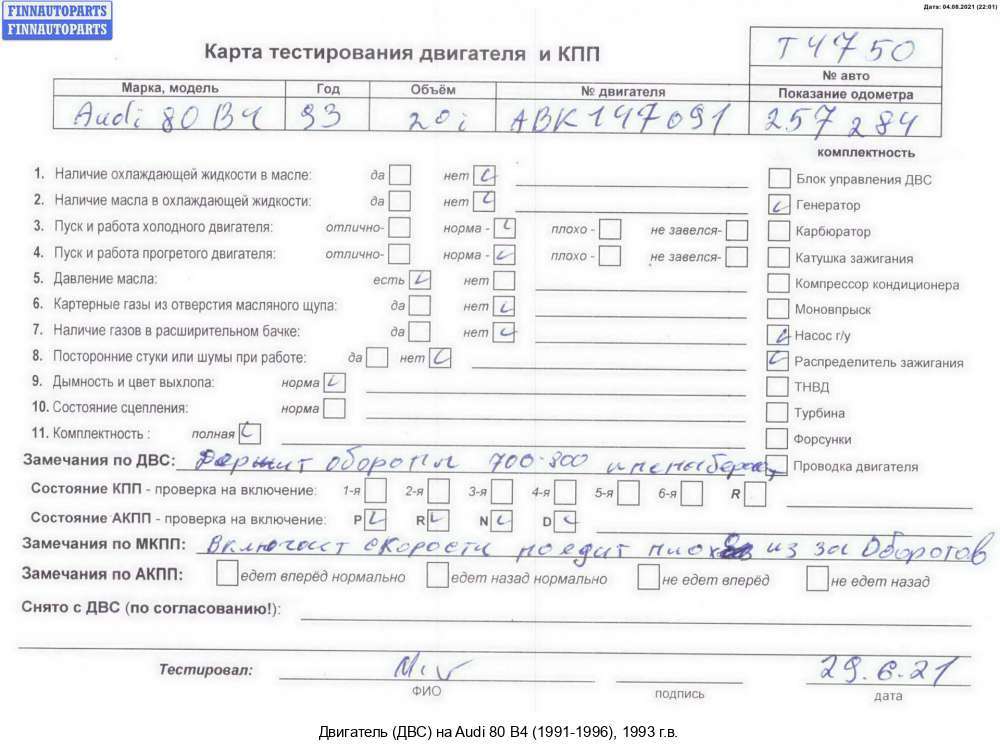 FINNAUTOPARTS
FINNAUTOPARTS
Дата: 04.08.2021 (22:01)
Карта тестирования двигателя и КПП
T4750
№ авто
Марка, модель Год Объём № двигателя Показание одометра
Audi 80 B4 93 20i ABK147091 257 284
комплектность
1. Наличие охлаждающей жидкости в масле: да нет
Блок управления ДВС
2. Наличие масла в охлаждающей жидкости: да нет
Генератор
3. Пуск и работа холодного двигателя: отлично- норма - плохо - не завелся-
Карбюратор
4. Пуск и работа прогретого двигателя: отлично- норма - плохо - не завелся-
Катушка зажигания
5. Давление масла: есть нет
Компрессор кондиционера
6. Картерные газы из отверстия масляного щупа: да нет
Моновпрыск
7. Наличие газов в расширительном бачке: да нет
Насос г/у
8. Посторонние стуки или шумы при работе: да нет
Распределитель зажигания
9. Дымность и цвет выхлопа: норма
ТНВД
10. Состояние сцепления: норма
Турбина
11. Комплектность : полная
Форсунки
Замечания по ДВС: Держит обороты 700-800
Проводка двигателя
Состояние КПП - проверка на включение: 1-я 2-я 3-я 4-я 5-я 6-я R
Состояние АКПП - проверка на включение: P R N D
Замечания по МКПП: Включает скорости поедит плохо из за Оборотов
Замечания по АКПП: едет вперёд нормально едет назад нормально не едет вперёд не едет назад
Снято с ДВС (по согласованию!):
Тестировал: 29.6.21
ФИО подпись дата
Двигатель (ДВС) на Audi 80 B4 (1991-1996), 1993 г.в.